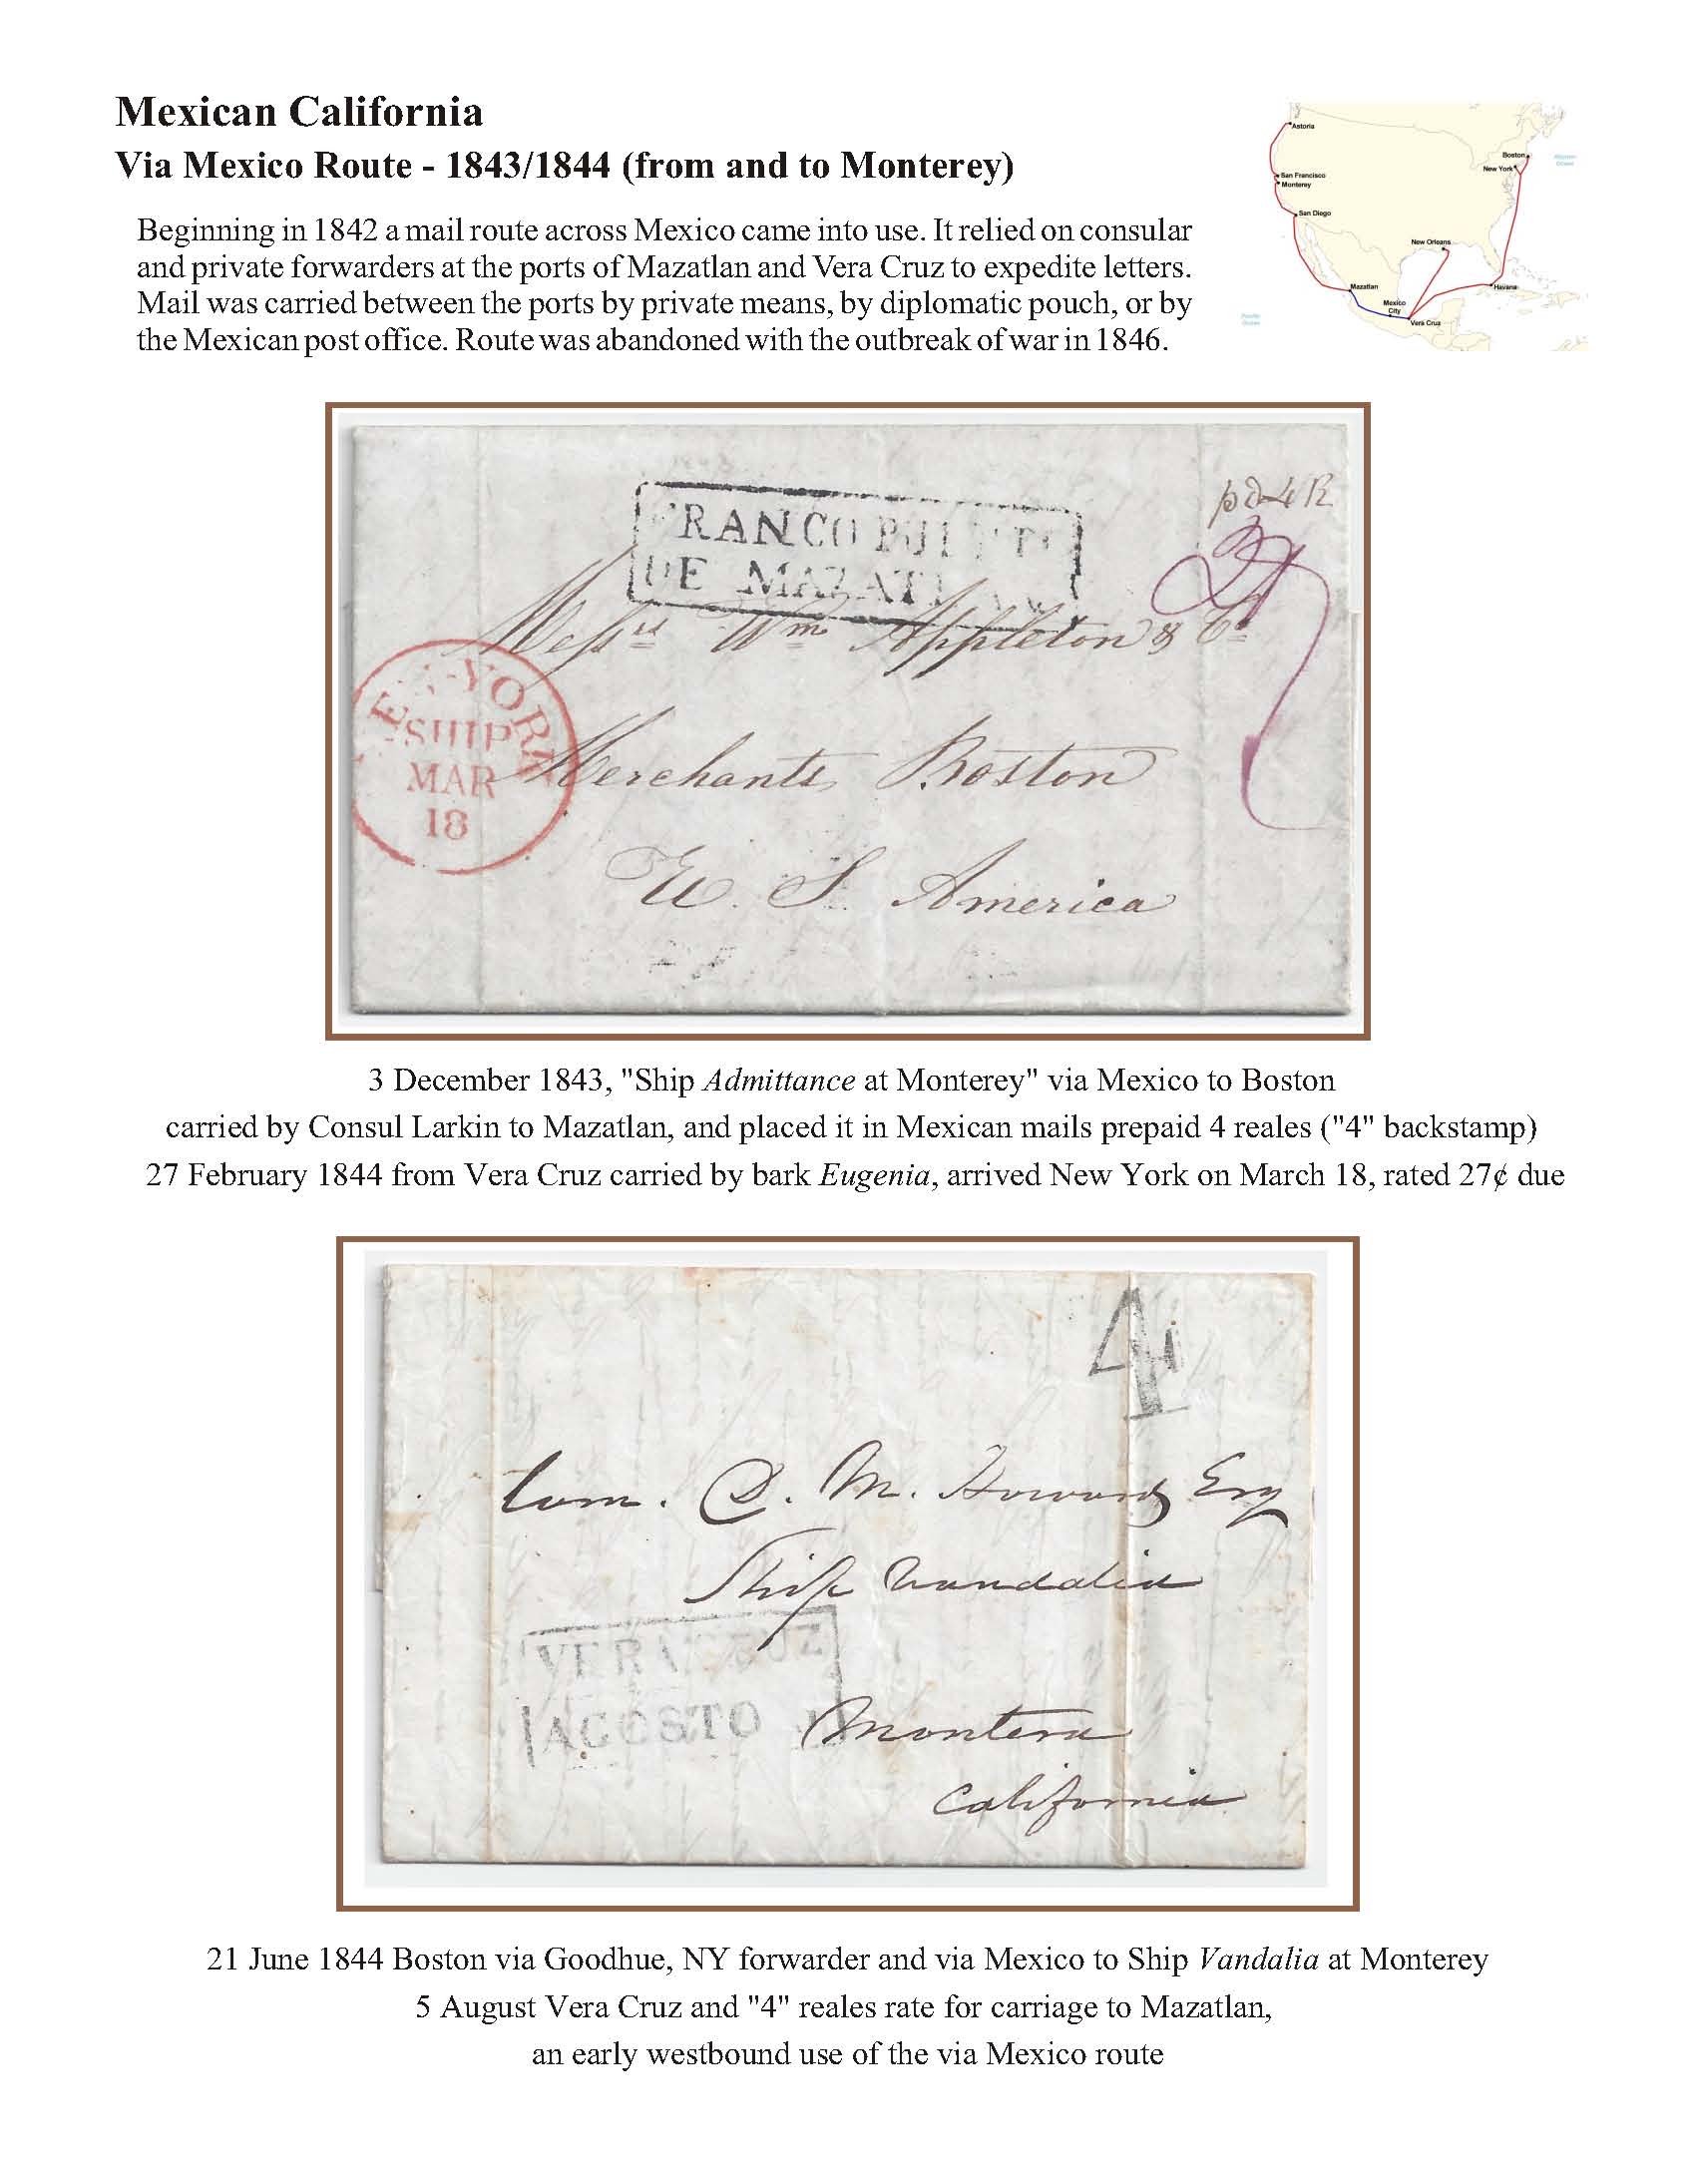 Mexican California
Via Mexico Route - 1843/1844 (from and to Monterey)
Beginning in 1842 a mail route across Mexico came into use. It relied on consular
and private forwarders at the ports of Mazatlan and Vera Cruz to expedite letters.
Mail was carried between the ports by private means, by diplomatic pouch, or by
the Mexican post office. Route was abandoned with the outbreak of war in 1846.
Astoria
San Francisco
Monterey
San Diego
Boston
New York
New Orleans
Mazatlan
Mexico
City
Vera Cruz
Havana
Pacific
Ocean
pd 4 R
FRANCO
DE MAZATLAN
27
Messrs Wm Appleton & Co
YORK
SHIP
MAR
18
Merchants Boston
U. S. America
3 December 1843, "Ship Admittance at Monterey" via Mexico to Boston
carried by Consul Larkin to Mazatlan, and placed it in Mexican mails prepaid 4 reales ("4" backstamp)
27 February 1844 from Vera Cruz carried by bark Eugenia, arrived New York on March 18, rated 27¢ due
4
D. M. Howard Esq
Ship Vandalia
VERA CRUZ
AGOSTO
Monterey
California
21 June 1844 Boston via Goodhue, NY forwarder and via Mexico to Ship Vandalia at Monterey
5 August Vera Cruz and "4" reales rate for carriage to Mazatlan,
an early westbound use of the via Mexico route